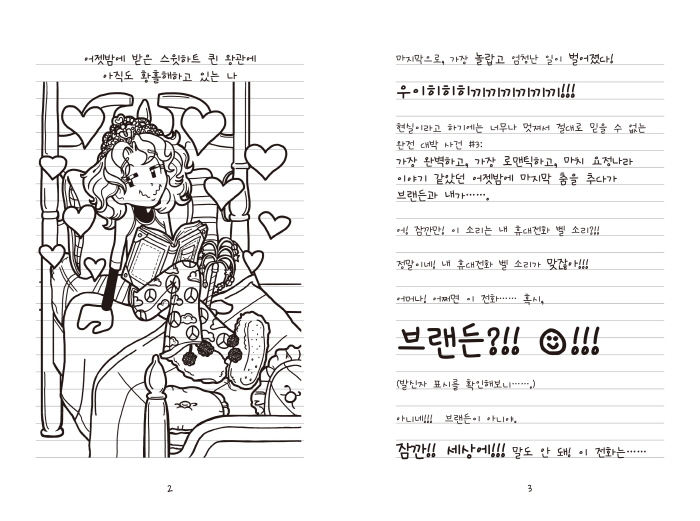 어젯밤에 받은 스윗하트 퀸 왕관에
아직도 황홀해하고 있는 나
2
마지막으로, 가장 놀랍고 엄청난 일이 벌어졌다!
우이히히히끼끼끼끼끼끼!!!
현실이라고 하기에는 너무나 멋져서 절대로 믿을 수 없는
완전 대박 사건 #3:
가장 완벽하고, 가장 로맨틱하고, 마치 요정나라
이야기 같았던 어젯밤에 마지막 춤을 추다가
브랜든과 내가…….
어! 잠깐만! 이 소리는 내 휴대전화 벨 소리?!!
정말이네! 내 휴대전화 벨 소리가 맞잖아!!!
어머나! 어쩌면 이 전화…… 혹시,
브랜든?!! ☺!!!
(발신자 표시를 확인해보니…….)
아니네!!! 브랜든이 아니야.
잠깐!! 세상에!!! 말도 안 돼! 이 전화는……
3